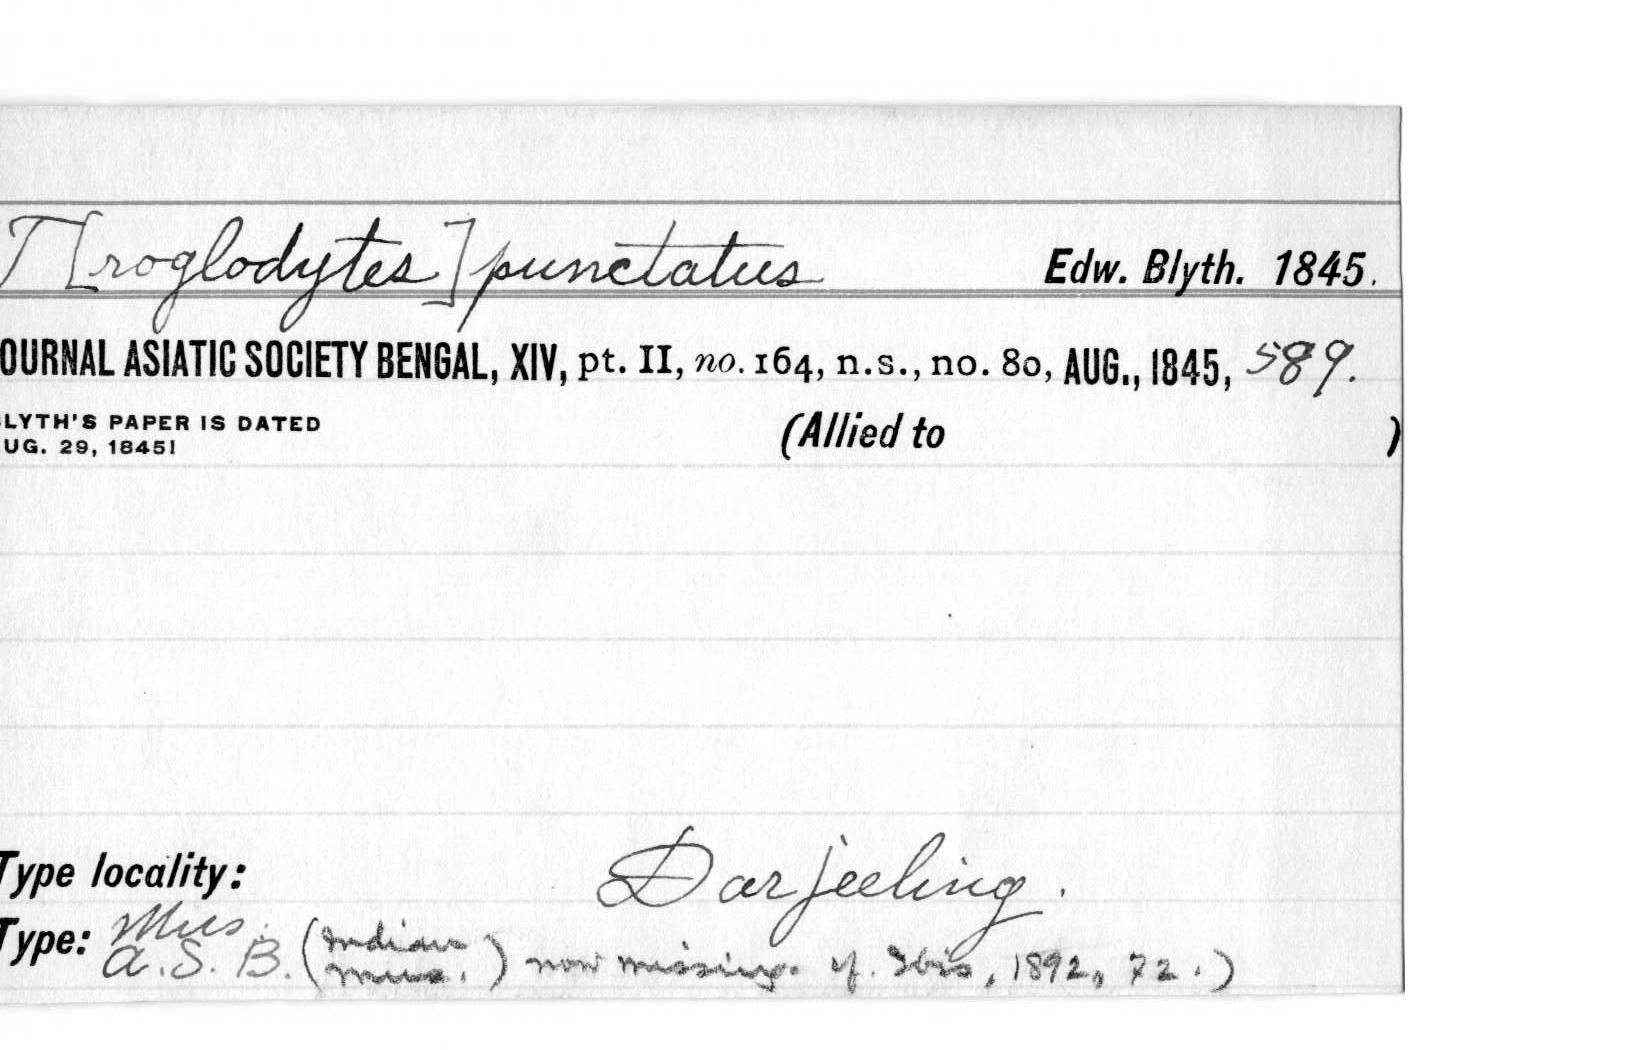 T[roglodytes] punctatus Edw. Blyth. 1845.
OURNAL ASIATIC SOCIETY BENGAL, XIV, pt. II, no. 164, n.s., no. 80, AUG., 1845, 589.
LYTH'S PAPER IS DATED (Allied to )
UG. 29, 1845!
Type locality: Darjeeling.
Type: Mus. A.S.B. (Indian Mus.) now missing. cf. Ibis, 1892, 72.)